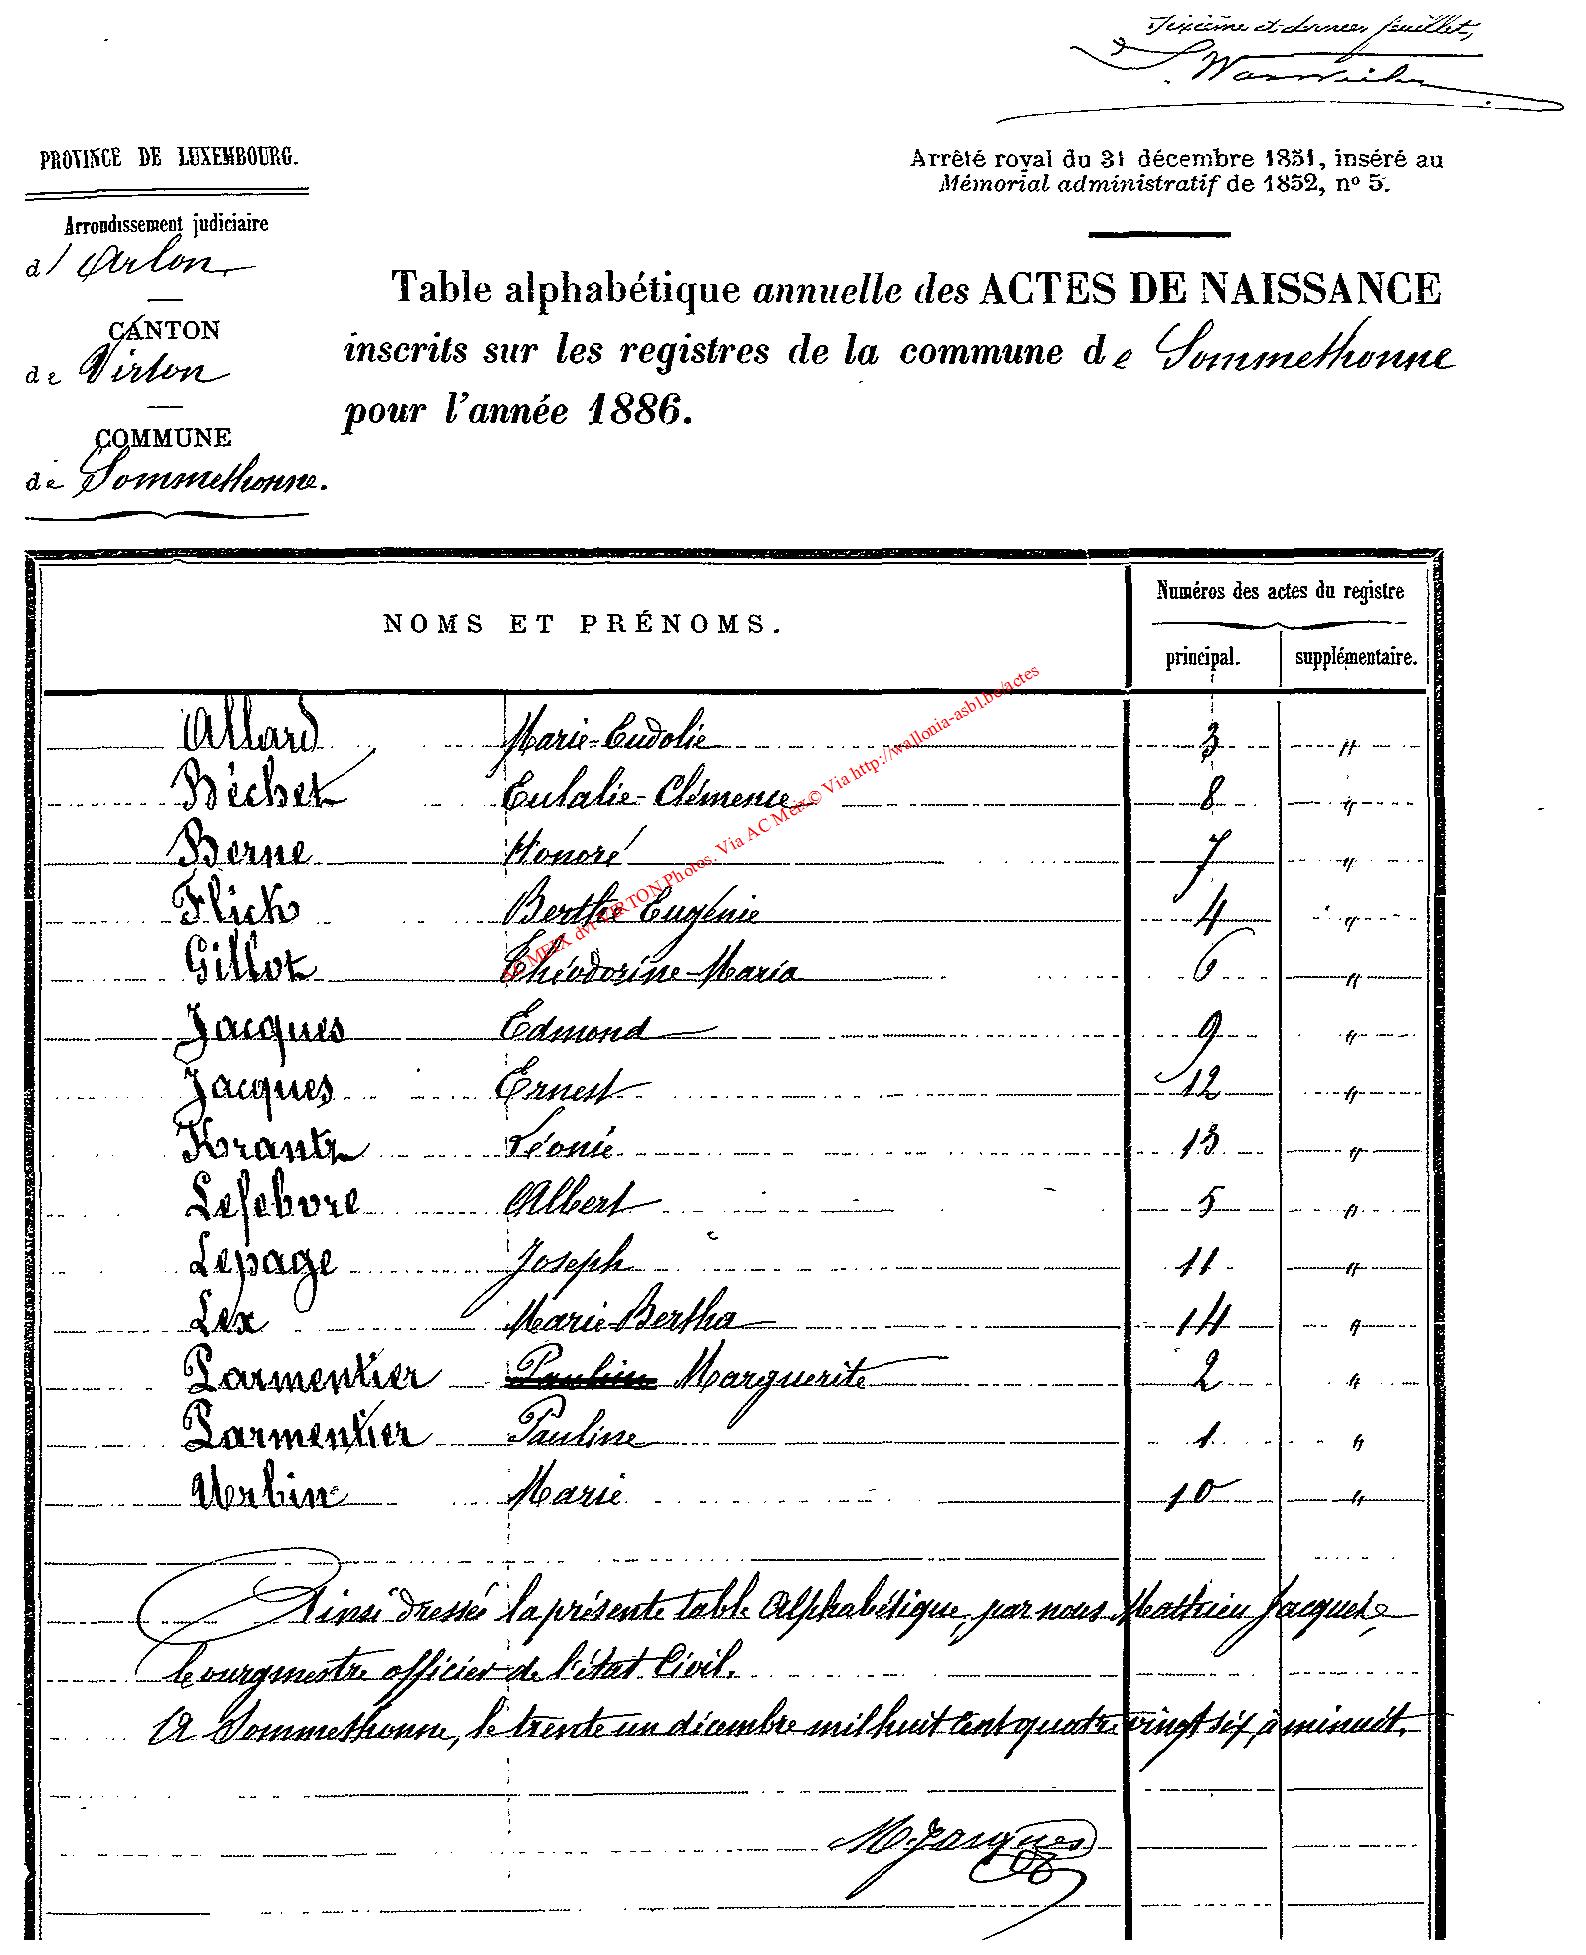 Sixième et dernier feuillet,
PROVINCE DE LUXEMBOURG.
Arrêté royal du 31 décembre 1851, inséré au
Mémorial administratif de 1852, nº 5.
Arrondissement judiciaire
d' Arlon
CANTON
de Virton
COMMUNE
de Sommethonne.
Table alphabétique annuelle des ACTES DE NAISSANCE
inscrits sur les registres de la commune de Sommethonne
pour l'année 1886.
NOMS ET PRÉNOMS.
Numéros des actes du registre
principal. supplémentaire.
Allard Marie-Eudolie 3 "
Béchet Eulalie-Clémence 8 "
Berne Honoré 7 "
Flick Berthe Eugénie 4 "
Gillot Théodorine-Maria 6 "
Jacques Edmond 9 "
Jacques Ernest 12 "
Krantz Léonie 13 "
Lefebvre Albert 5 "
Lepage Joseph 11 "
Lex Marie-Bertha 14 "
Parmentier Marguerite 2 "
Parmentier Pauline 1 "
Urbin Marie 10 "
Ainsi dressée la présente table Alphabétique, par nous Mathieu Jacques
bourgmestre officier de l'état Civil.
A Sommethonne, le trente un décembre mil huit cent quatre vingt six, à minuit.
M. Jacques
AC MEIX dvt VIRTON Photos. Via AC Meix© Via http://wallonia-asbl.be/actes